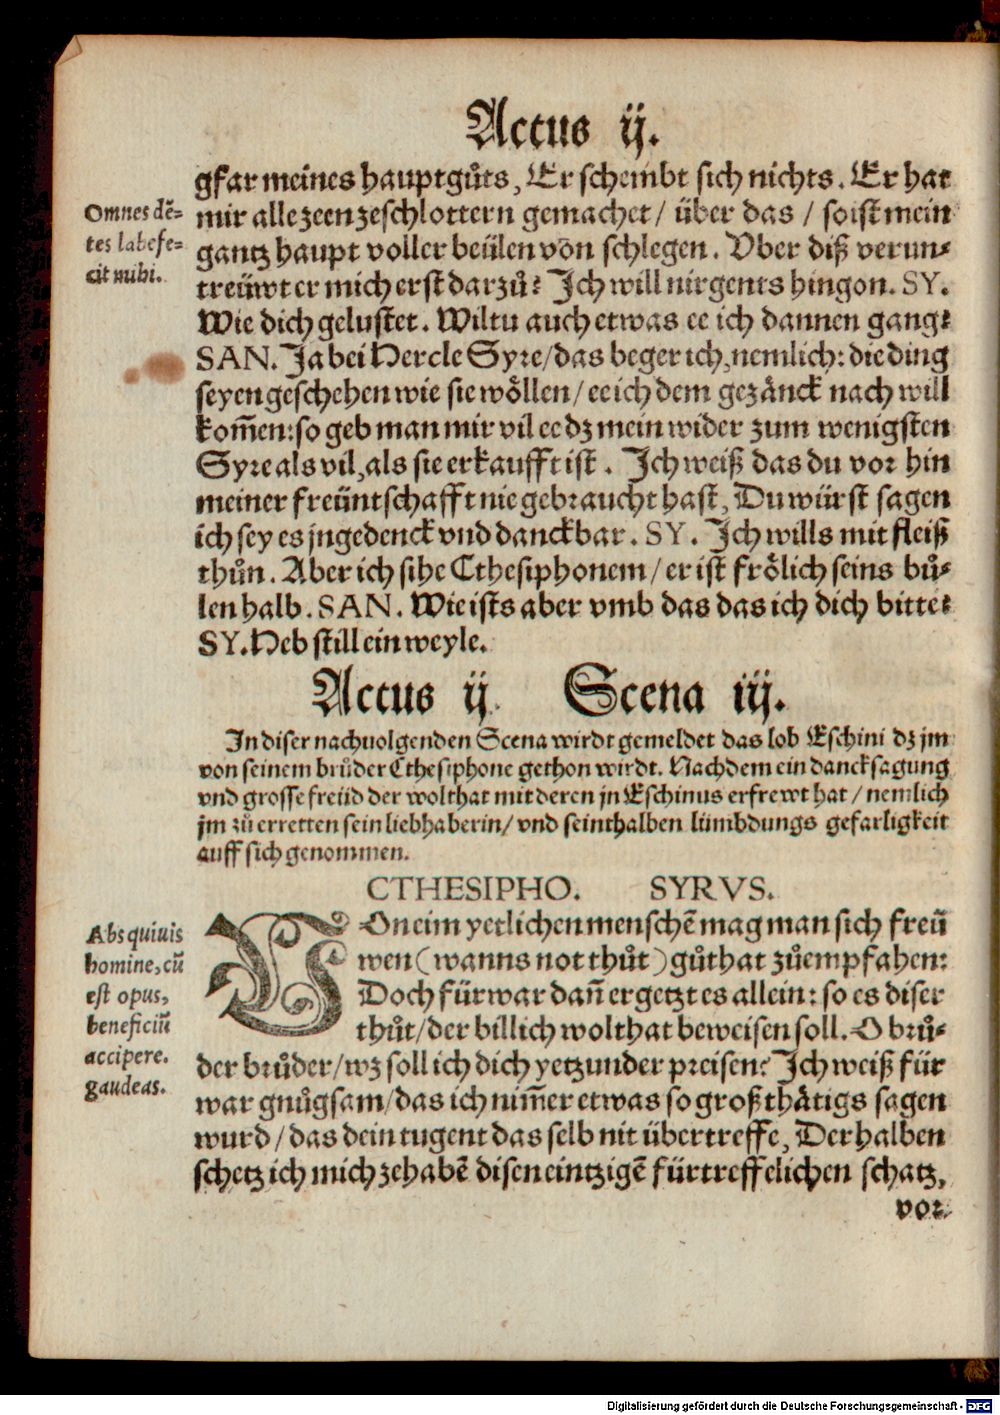 Actus ij.
gfar meines hauptgůts, Er schembt sich nichts. Er hat
mir alle zeen zeschlottern gemachet / über das / so ist mein
gantz haupt voller beülen von schlegen. Vber diß verun-
treüwt er mich erst darzů? Ich will nirgents hingon. SY.
Wie dich gelustet. Wiltu auch etwas ee ich dannen gang?
SAN. Ja bei Hercle Syre / das beger ich, nemlich: die ding
seyen geschehen wie sie wöllen / ee ich dem gezänck nach will
kom̃en: so geb man mir vil ee dz mein wider zum wenigsten
Syre als vil, als sie erkaufft ist. Ich weiß das du vor hin
meiner freüntschafft nie gebraucht hast, Du würst sagen
ich sey es jngedenck vnd danckbar. SY. Ich wills mit fleiß
thůn. Aber ich sihe Cthesiphonem / er ist frölich seins bů-
len halb. SAN. Wie ists aber vmb das das ich dich bitte?
SY. Heb still ein weyle.
Omnes dē-
tes labefe-
cit mihi.
Actus ij. Scena iij.
In diser nachuolgenden Scena wirdt gemeldet das lob Eschini dz jm
von seinem brůder Cthesiphone gethon wirdt. Nachdem ein dancksagung
vnd grosse freüd der wolthat mit deren jn Eschinus erfrewt hat / nemlich
jm zů erretten sein liebhaberin / vnd seinthalben lümbdungs gefarligkeit
auff sich genommen.
CTHESIPHO. SYRVS.
VOn eim yetlichen menschē mag man sich freü
wen (wanns not thůt) gůthat zů empfahen:
Doch fürwar dañ ergetzt es allein: so es diser
thůt / der billich wolthat beweisen soll. O brů-
der brůder / wz soll ich dich yetzunder preisen? Ich weiß für
war gnůgsam / das ich nim̃er etwas so groß thätigs sagen
wurd / das dein tugent das selb nit übertreffe, Derhalben
schetz ich mich zehabē disen eintzigē fürtreffelichen schatz,
vor
Abs quiuis
homine, cū
est opus,
beneficiū
accipere.
gaudeas.
Digitalisierung gefördert durch die Deutsche Forschungsgemeinschaft - DFG